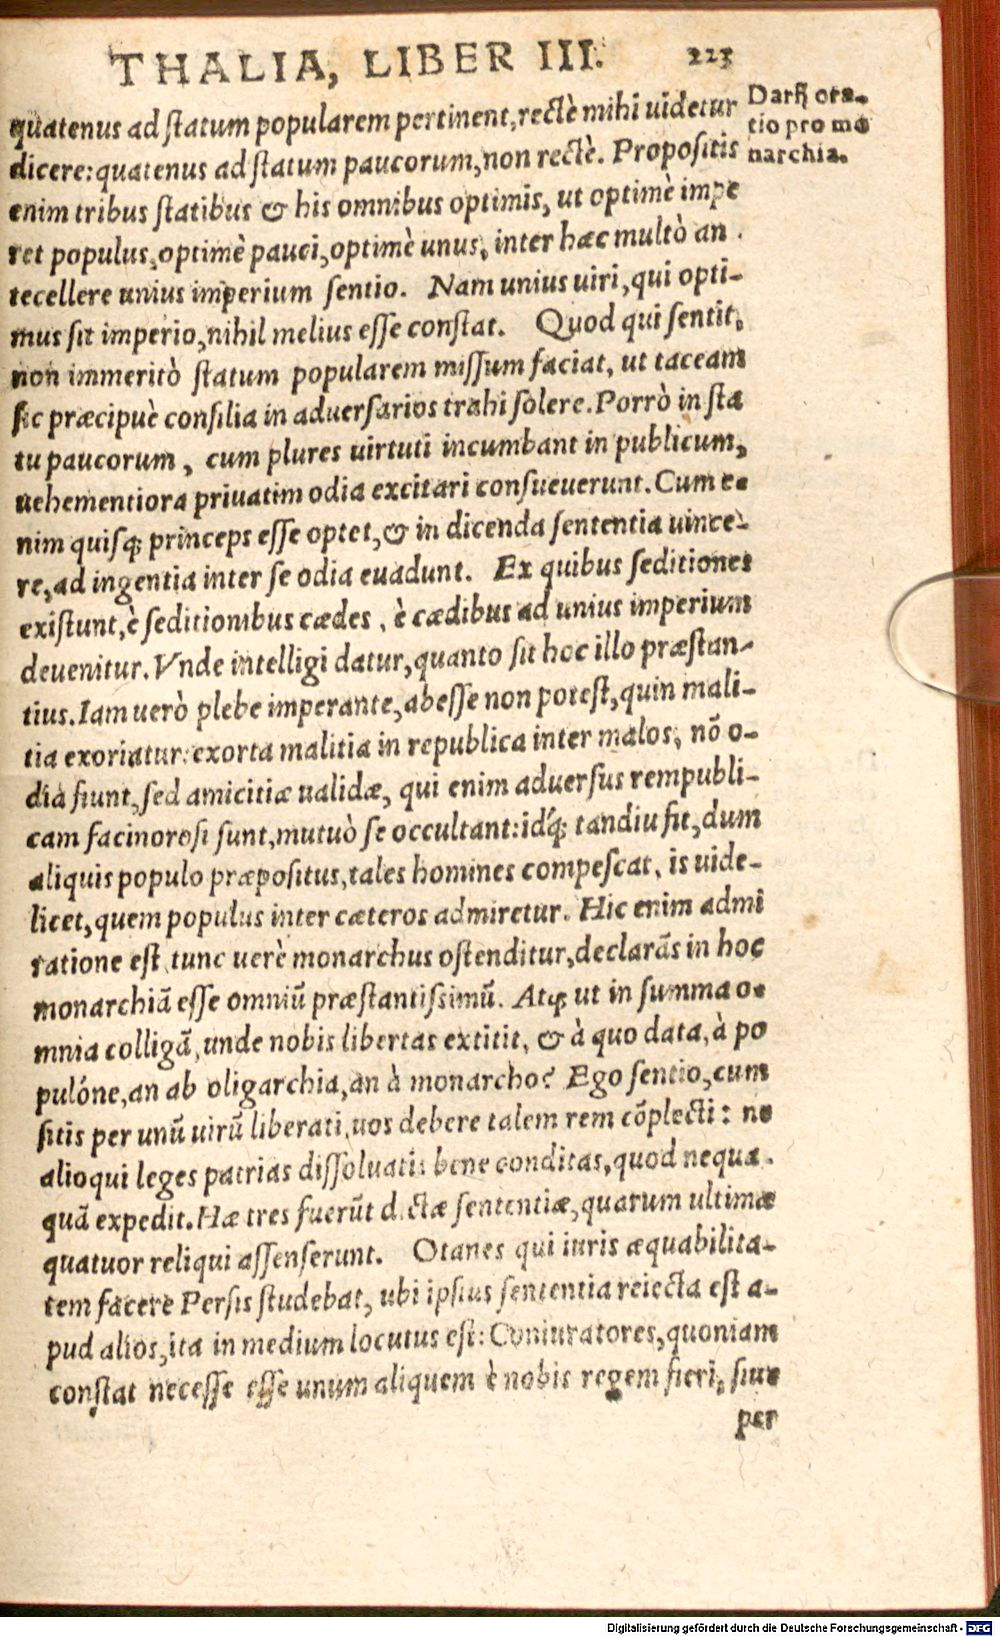 THALIA, LIBER III. 223
Darij ora-
tio pro mo
narchia.
quatenus ad ſtatum popularem pertinent, rectè mihi uidetur
dicere: quatenus ad ſtatum paucorum, non rectè. Propoſitis
enim tribus ſtatibus & his omnibus optimis, ut optimè impe
ret populus, optimè pauci, optimè unus, inter hæc multò an
tecellere unius imperium ſentio. Nam unius uiri, qui opti-
mus ſit imperio, nihil melius eſſe conſtat. Quod qui ſentit,
non immeritò ſtatum popularem miſſum faciat, ut taceam
ſic præcipuè conſilia in aduerſarios trahi ſolere. Porrò in ſta
tu paucorum, cum plures uirtuti incumbant in publicum,
uehementiora priuatim odia excitari conſueuerunt. Cum e-
nim quiſq; princeps eſſe optet, & in dicenda ſententia uince-
re, ad ingentia inter ſe odia euadunt. Ex quibus ſeditiones
exiſtunt, è ſeditionibus cædes, è cædibus ad unius imperium
deuenitur. Vnde intelligi datur, quanto ſit hoc illo præſtan-
tius. Iam uerò plebe imperante, abeſſe non poteſt, quin mali-
tia exoriatur: exorta malitia in republica inter malos, nõ o-
dia fiunt, ſed amicitiæ ualidæ, qui enim aduerſus rempubli-
cam facinoroſi ſunt, mutuò ſe occultant: idq́; tandiu fit, dum
aliquis populo præpoſitus, tales homines compeſcat, is uide-
licet, quem populus inter cæteros admiretur. Hic enim admi
ratione eſt tunc uerè monarchus oſtenditur, declarãs in hoc
monarchiã eſſe omniũ præſtantiſsimũ. Atq; ut in ſumma o-
mnia colligã, unde nobis libertas extitit, & à quo data, à po
pulóne, an ab oligarchia, an à monarcho? Ego ſentio, cum
ſitis per unũ uirũ liberati, uos debere talem rem cõplecti: ne
alioqui leges patrias diſſoluatis bene conditas, quod nequa-
quã expedit. Hæ tres fuerũt dictæ ſententiæ, quarum ultimæ
quatuor reliqui aſſenſerunt. Otanes qui iuris æquabilita-
tem facere Perſis ſtudebat, ubi ipſius ſententia reiecta eſt a-
pud alios, ita in medium locutus eſt: Coniuratores, quoniam
conſtat neceſſe eſſe unum aliquem è nobis regem fieri, ſiue
per
Digitalisierung gefördert durch die Deutsche Forschungsgemeinschaft - DFG